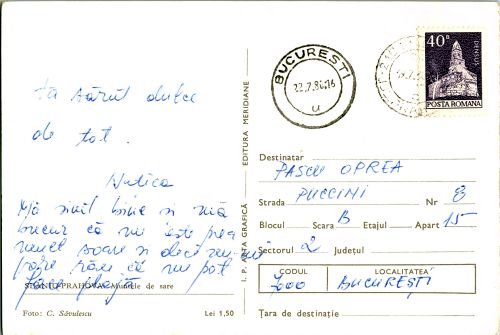 Te sărut dulce
de tot.
Nutica
Mă simt bine si mă
bucur că nu este prea
mult soare si deci
rău că nu pot
face plajă
SLĂNIC-PRAHOVA - Muntele de sare
Foto: C. Săvulescu Lei 1,50
I. P. ARTA GRAFICĂ EDITURA MERIDIANE
BUCUREŞTI
22.7.80.16
u
40B
DENSUŞ
POSTA ROMANA
Destinatar
PASCU OPREA
Strada PUCCINI Nr 8
Blocul Scara B Etajul Apart 15
Sectorul 2 Judeţul
CODUL LOCALITATEA
7000 BUCUREŞTI
Ţara de destinaţie